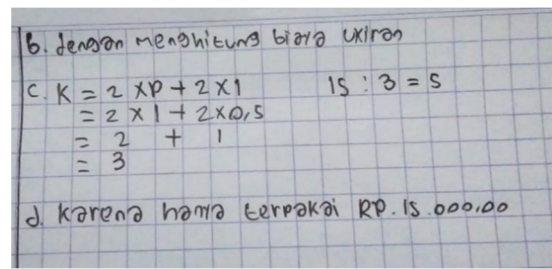 b. dengan menghitung biaya ukiran
c. K = 2 x p + 2 x l 15 : 3 = 5
= 2 x 1 + 2 x 0,5
= 2 + 1
= 3
d. karena hanya terpakai RP. 15.000,00